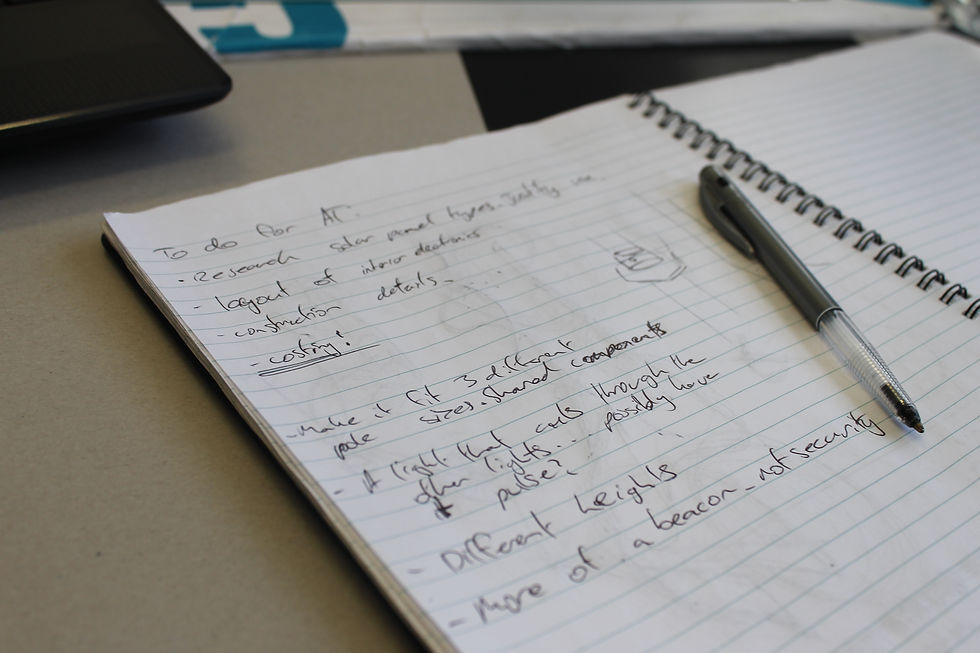 To do for AT.
- Research solar panel types. Justify use.
- layout of interior electronics
- construction details.
- costing!
- Make it fit 3 different
pole sizes. shared components
- A light that cuts through the
other lights... possibly have
it pulse?
- Different heights
- More of a beacon - not security